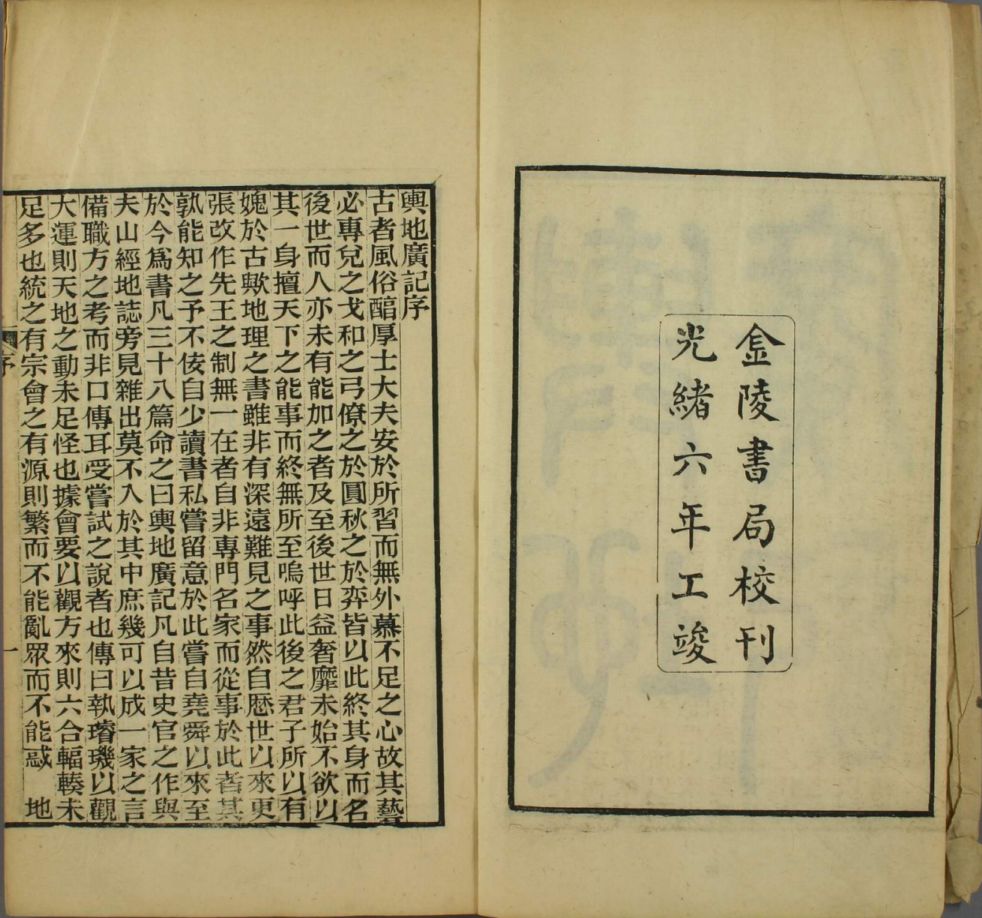 金陵書局校刊
光緒六年工竣
輿地廣記序
古者風俗醕厚士大夫安於所習而無外慕不足之心故其藝
必專兒之戈和之弓僚之於圓秋之於弈皆以此終其身而名
後世而人亦未有能加之者及至後世日益奢靡未始不欲以
其一身擅天下之能事而終無所至嗚呼此後之君子所以有
媿於古歟地理之書雖非有深遠難見之事然自歷世以來更
張改作先王之制無一在者自非專門名家而從事於此者其
孰能知之予不佞自少讀書私嘗留意於此嘗自堯舜以來至
於今爲書凡三十八篇命之曰輿地廣記凡自昔史官之作與
夫山經地誌旁見雜出莫不入於其中庶幾可以成一家之言
備職方之考而非口傳耳受嘗試之說者也傳曰執璿璣以觀
大運則天地之動未足怪也據會要以觀方來則六合輻輳未
足多也統之有宗會之有源則繁而不能亂眾而不能惑 地
序
一